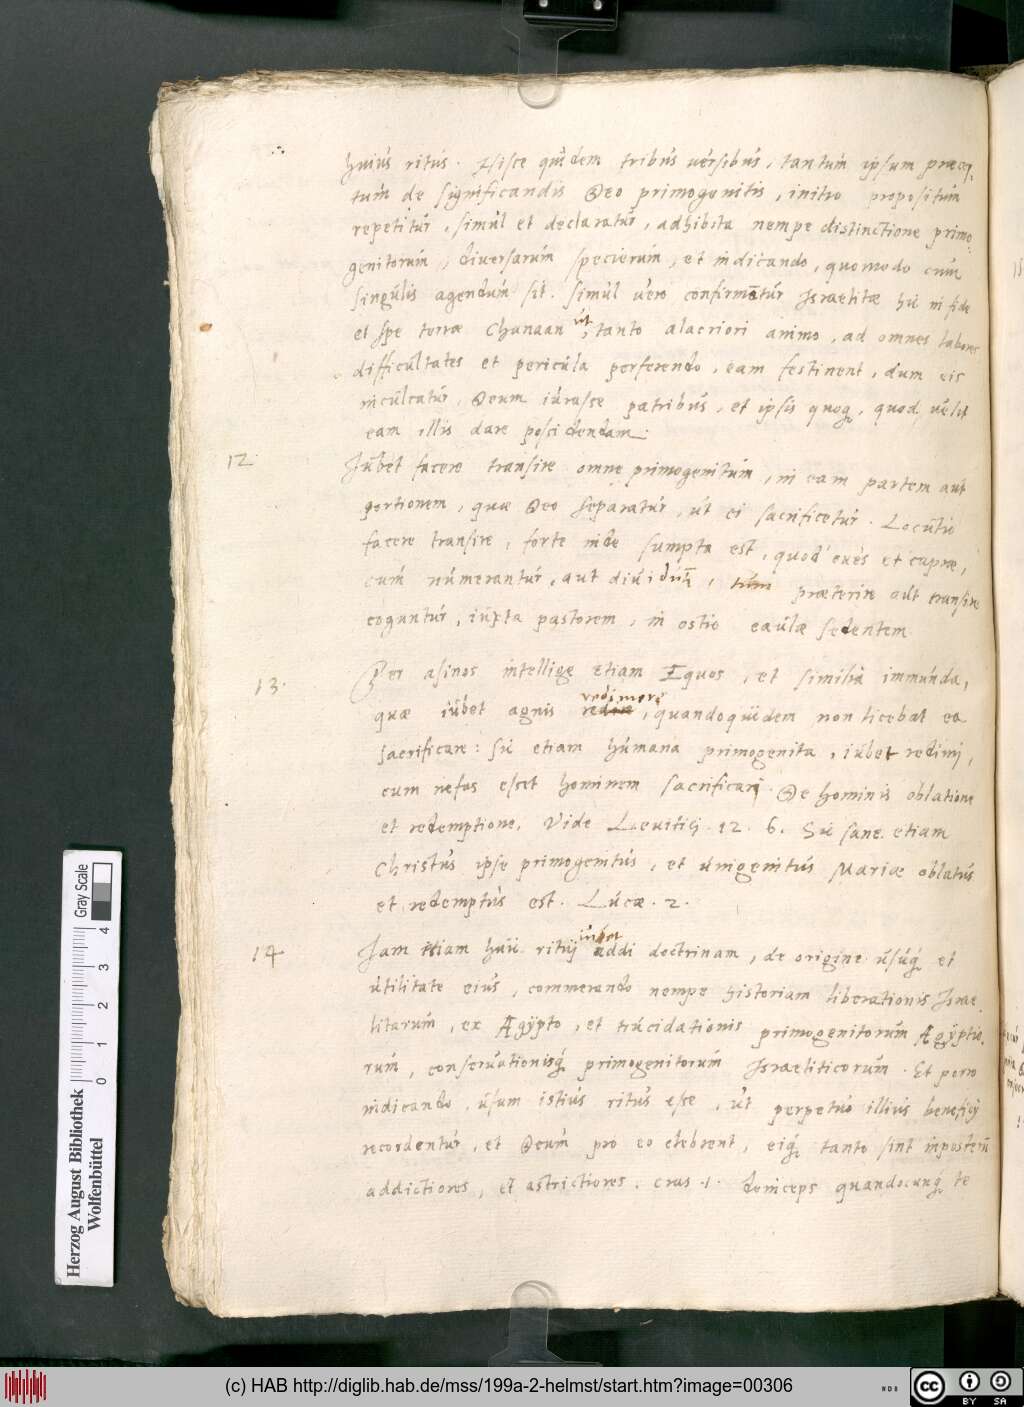 huius ritus. Hisce quidem tribus versibus, tantum ipsum præcep,
tum de significandis Deo primogenitis, initio propositum
repetitur, simul et declaratur, adhibita nempe distinctione primo,
genitorum, diversarum specierum, et indicando, quomodo cum
singulis agendum sit. Simul vero confirmātur Israelitæ hic in fide
et spe terræ Chanaan, ut tanto alacriori animo, ad omnes labores
difficultates et pericula perferendo, eam festinent, dum eis
inculcatur, Deum iurasse patribus, et ipsis quoq, quod velit
eam illis dare possidendam.
12. Iubet facere transire omne primogenitum, in eam partem aut
portionem, quæ Deo separatur, ut ei sacrificetur. Locutio
facere transire, forte inde sumpta est, quod oues et capræ,
cum numerantur, aut diuidūt, tum præterire aut transire
coguntur, iuxta pastorem, in ostio caulæ sedentem
13. Per asinos intellige etiam Equos, et similia immunda,
quæ iubet agnis redimere, quandoquidem non licebat ea
sacrificare: sic etiam humana primogenita, iubet redimi,
cum nefas esset hominem sacrificari. De hominis oblatione
et redemptione, Vide Leuitici. 12. 6. Sic sane etiam
Christus ipse primogenitus, et unigenitus Mariæ oblatus
et redemptus est. Lucæ. 2.
14 Jam etiam huic ritui iubet addi doctrinam, de origine usuq et
utilitate eius, commerando nempe historiam liberationis Israe
litarum, ex Ægypto, et trucidationis primogenitorum Ægyptio,
rum, conseruationisq primogenitorum Israeliticorum. Et porro
indicando, usum istius ritus esse, ut perpetuo illius beneficij
recordentur, et Deum pro eo celebrent, eiq tanto sint inposterū
addictiores, et astrictiores. cras .1. deinceps quandocunq te
Herzog August Bibliothek
Wolfenbüttel
0 1 2 3 4
Gray Scale
(c) HAB http://diglib.hab.de/mss/199a-2-helmst/start.htm?image=00306
CC BY SA